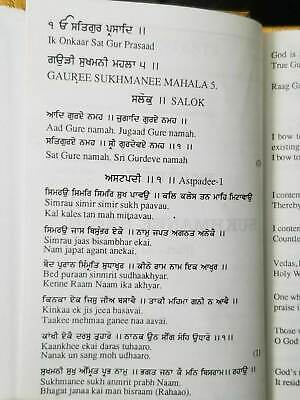 ੧ ਓ ਸਤਿਗੁਰ ਪ੍ਰਸਾਦਿ ॥
Ik Onkaar Sat Gur Prasaad
ਗਉੜੀ ਸੁਖਮਨੀ ਮਹਲਾ ੫ ॥
GAUREE SUKHMANEE MAHALA 5.
ਸਲੋਕੁ ॥ SALOK
ਆਦਿ ਗੁਰਏ ਨਮਹ ॥ ਜੁਗਾਦਿ ਗੁਰਏ ਨਮਹ ॥
Aad Gure namah. Jugaad Gure namah.
ਸਤਿਗੁਰਏ ਨਮਹ ॥ ਸ੍ਰੀ ਗੁਰਦੇਵਏ ਨਮਹ ॥੧॥
Sat Gure namah. Sri Gurdeve namah
ਅਸਟਪਦੀ ॥ 1 ॥ Astpadee-1
ਸਿਮਰਉ ਸਿਮਰਿ ਸਿਮਰਿ ਸੁਖ ਪਾਵਉ ॥ ਕਲਿ ਕਲੇਸ ਤਨ ਮਾਹਿ ਮਿਟਾਵਉ
Simrau simir simir sukh paavau.
Kal kales tan mah mitaavau.
ਸਿਮਰਉ ਜਾਸ ਬਿਸੁੰਭਰ ਏਕੈ ॥ ਨਾਮੁ ਜਪਤ ਅਗਨਤ ਅਨੇਕੈ ॥
Simrau jaas bisambhar ekai.
Nam japat agant anekai.
ਬੇਦ ਪੁਰਾਨ ਸਿੰਮ੍ਰਿਤਿ ਸੁਧਾਖ੍ਯਰ ॥ ਕੀਨੇ ਰਾਮ ਨਾਮ ਇਕ ਆਖ੍ਯਰ ॥
Bed puraan sinmrit sudhaakhyar.
Kenne Raam Naam ika akhyar.
ਕਿਨਕਾ ਏਕ ਜਿਸੁ ਜੀਅ ਬਸਾਵੈ ॥ ਤਾਕੀ ਮਹਿਮਾ ਗਨੀ ਨ ਆਵੈ ॥
Kinkaa ek jis jeea basavai.
Taakee mehmaa ganee naa aavai.
ਕਾਂਖੀ ਏਕੈ ਦਰਸੁ ਤੁਹਾਰੋ ॥ ਨਾਨਕ ਉਨ ਸੰਗਿ ਮੋਹਿ ਉਧਾਰੋ ॥੧॥
Kaankhee ekai daras tuhaaro.
Nanak un sang moh udhaaro.
ਸੁਖਮਨੀ ਸੁਖ ਅੰਮ੍ਰਿਤ ਪ੍ਰਭ ਨਾਮੁ ॥ ਭਗਤ ਜਨਾ ਕੈ ਮਨਿ ਬਿਸਰਾਮ ॥ ਰਹਾਉ ॥
Sukhmanee sukh anmrit prabh Naam.
Bhagat janaa kai man bisraam (Rahaao).
God is
True Gu
Raag Ga
I bow to
existing
I bow to
I content
I content
Countle
Vedas,
Holy W
Those
O God